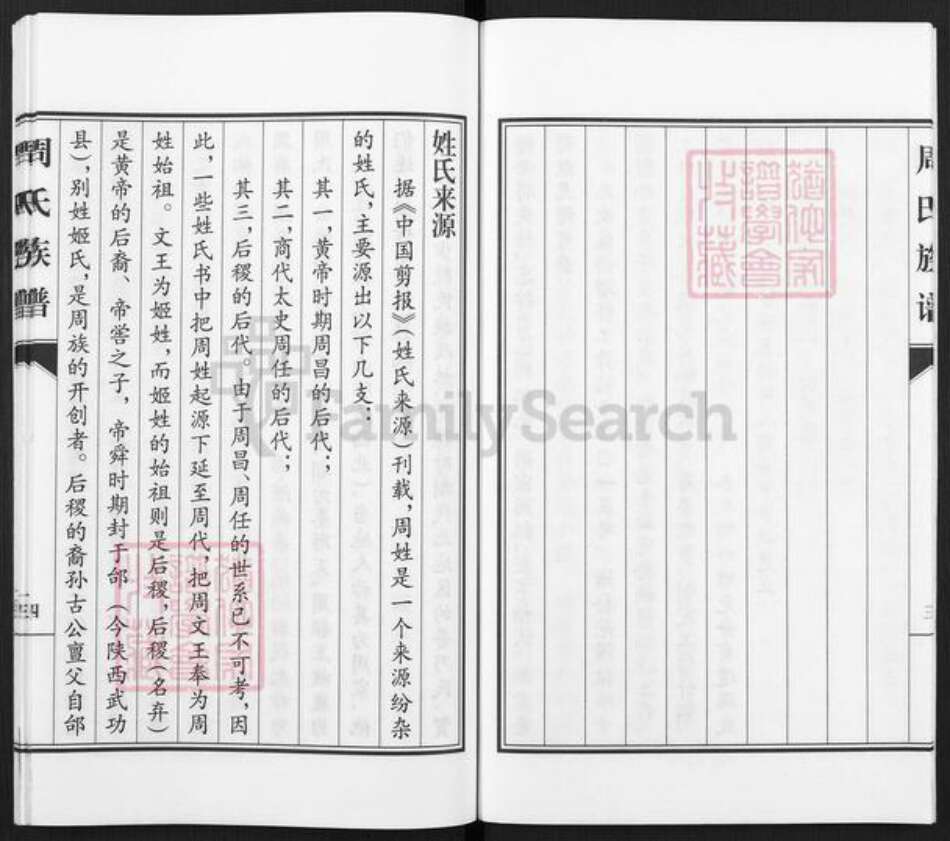 周氏族谱
三
姓氏来源
据《中国剪报》(姓氏来源)刊载,周姓是一个来源纷杂
的姓氏,主要源出以下几支:
其一,黄帝时期周昌的后代;
其二,商代太史周任的后代;
其三,后稷的后代。由于周昌、周任的世系已不可考,因
此,一些姓氏书中把周姓起源下延至周代,把周文王奉为周
姓始祖。文王为姬姓,而姬姓的始祖则是后稷,后稷(名弃)
是黄帝的后裔、帝喾之子,帝舜时期封于邰(今陕西武功
县),别姓姬氏,是周族的开创者。后稷的裔孙古公亶父自邰
周氏族譜
四
FamilySearch